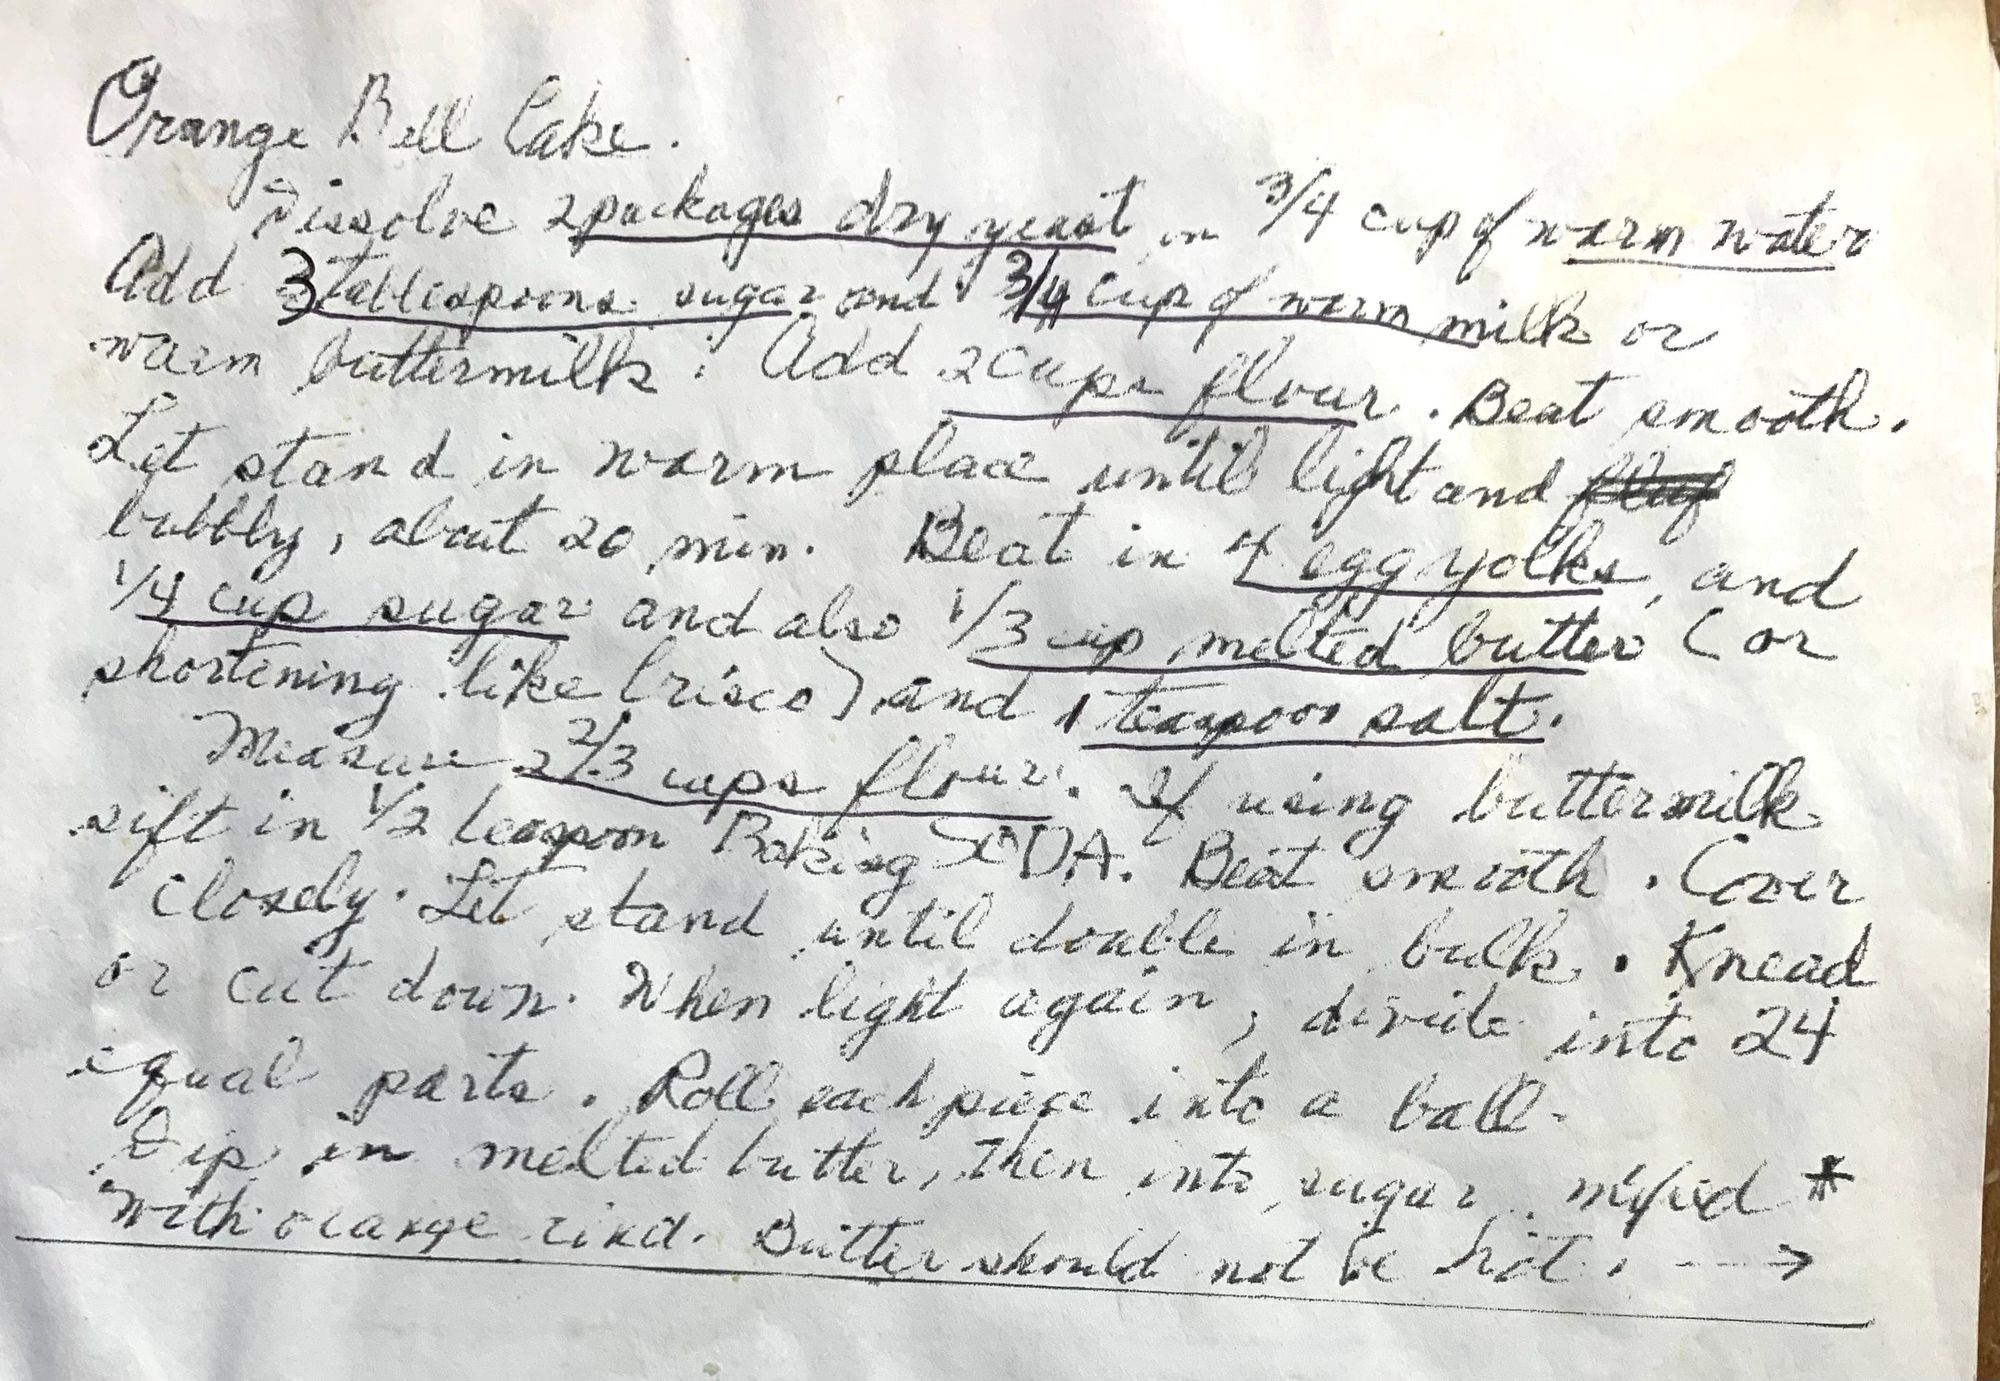 Orange Bell Cake.
Dissolve 2 packages dry yeast in 3/4 cup of warm water
Add 3 tablespoons sugar and 3/4 cup of warm milk or
warm buttermilk. Add 2 cups flour. Beat smooth.
Let stand in warm place until light and
bubbly, about 20 min. Beat in 4 egg yolks, and
1/4 cup sugar and also 1/3 cup melted butter (or
shortening like Crisco) and 1 teaspoon salt.
Measure 2 2/3 cups flour. If using buttermilk
sift in 1/2 teaspoon Baking SODA. Beat smooth. Cover
closely. Let stand until double in bulk. Knead
or cut down. When light again, divide into 24
equal parts. Roll each piece into a ball.
Dip in melted butter, then into sugar mixed *
with orange rind. Butter should not be hot. --->